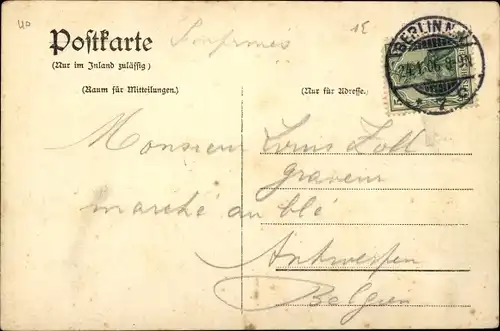 40
15
Postkarte
(Nur im Inland zulässig)
(Raum für Mitteilungen.)
(Nur für Adresse.)
BERLIN N.
24.1.06.
* 2 c *
Monsieur Louis Zoll
graveur
marché au blé
Antwerpen
Belgien